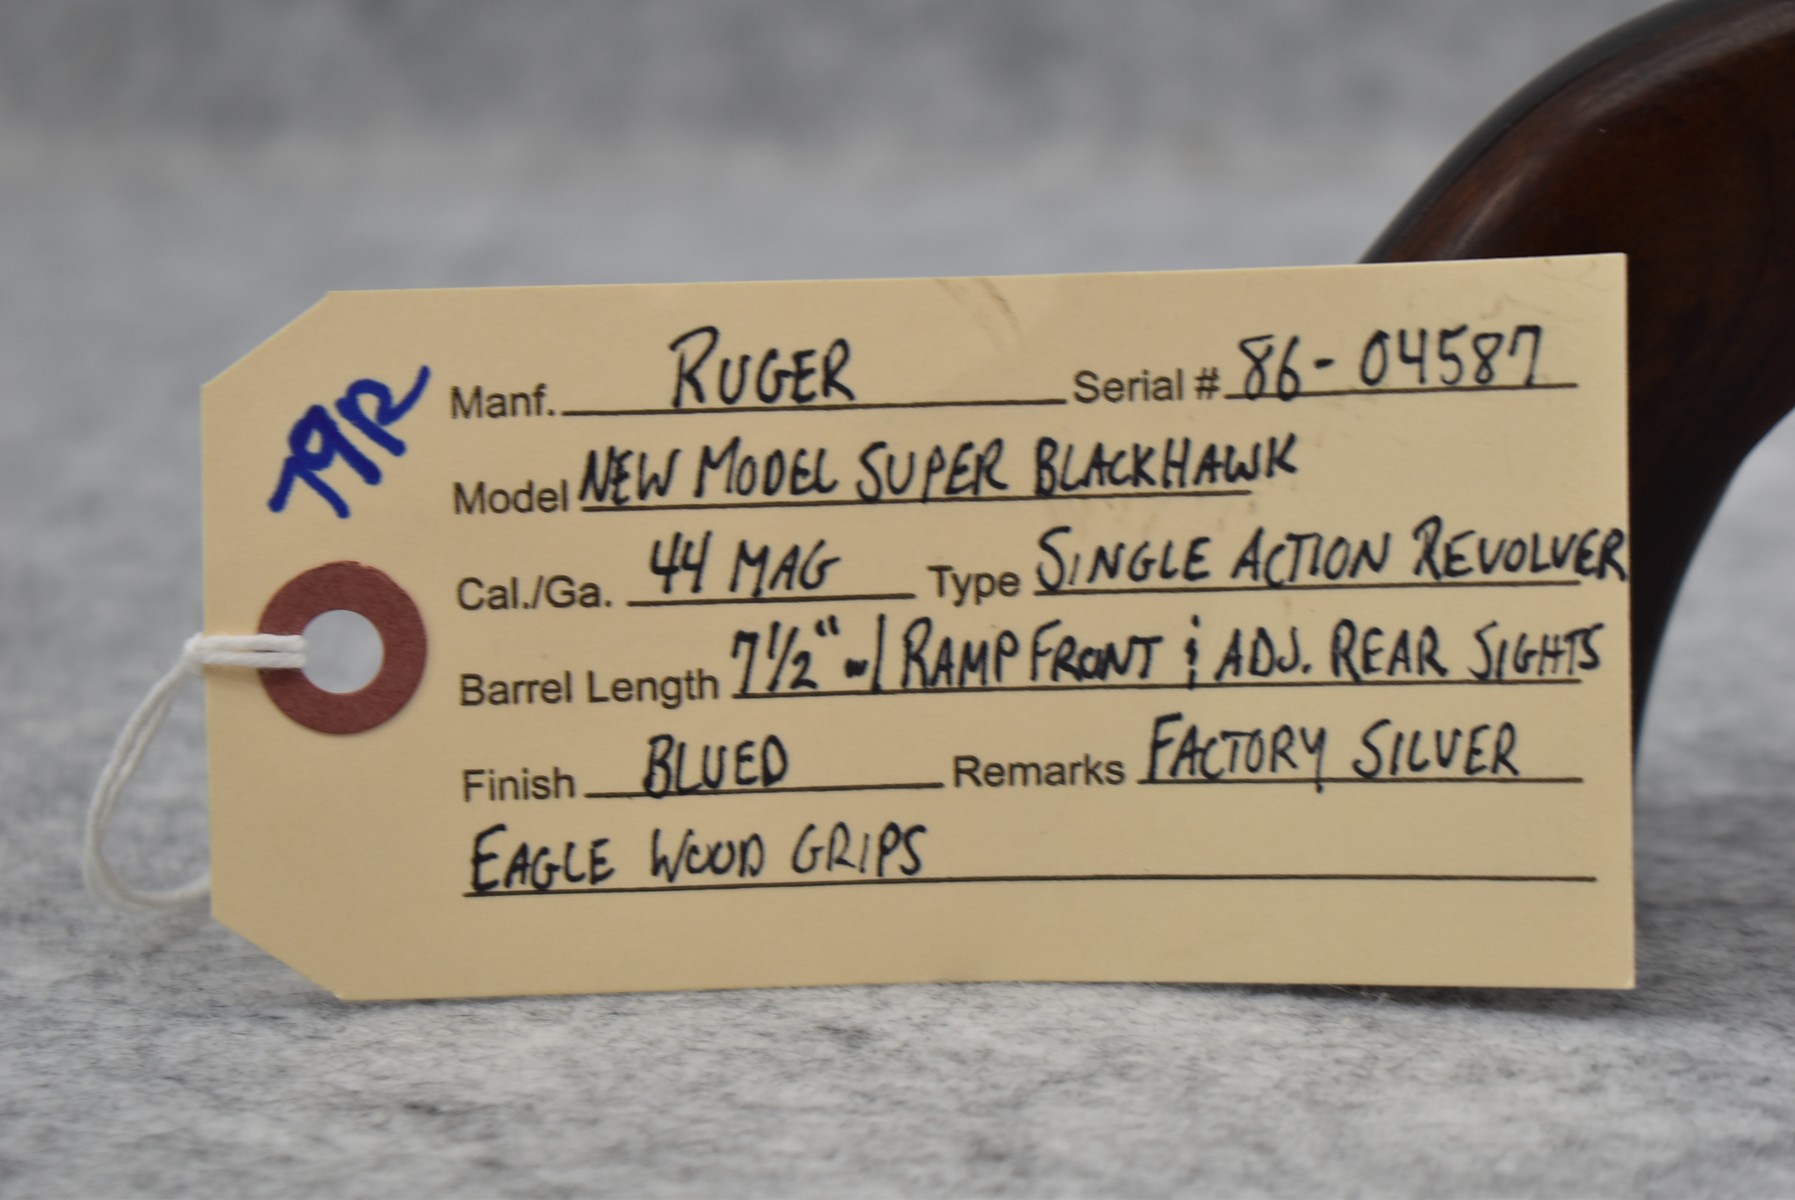 79R
Manf. RUGER Serial # 86-04587
Model NEW MODEL SUPER BLACKHAWK
Cal./Ga. 44 MAG Type SINGLE ACTION REVOLVER
Barrel Length 7 1/2" w/ RAMP FRONT & ADJ. REAR SIGHTS
Finish BLUED Remarks FACTORY SILVER
EAGLE WOOD GRIPS